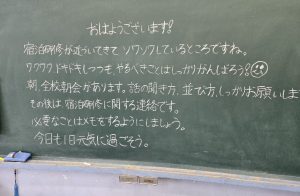 おはようございます!
宿泊研修が近づいてきて、ソワソワしているところですね。
ワクワクドキドキしつつも、やるべきことはしっかりがんばろう!
朝、全校朝会があります。話の聞き方、並び方、しっかりお願いしま
その後は、宿泊研修に関する連絡です。
必要なことはメモをするようにしましょう。
今日も1日元気に過ごそう。